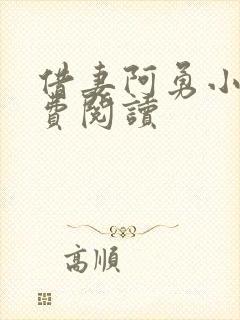 借妻阿勇小
費閱讀
高順